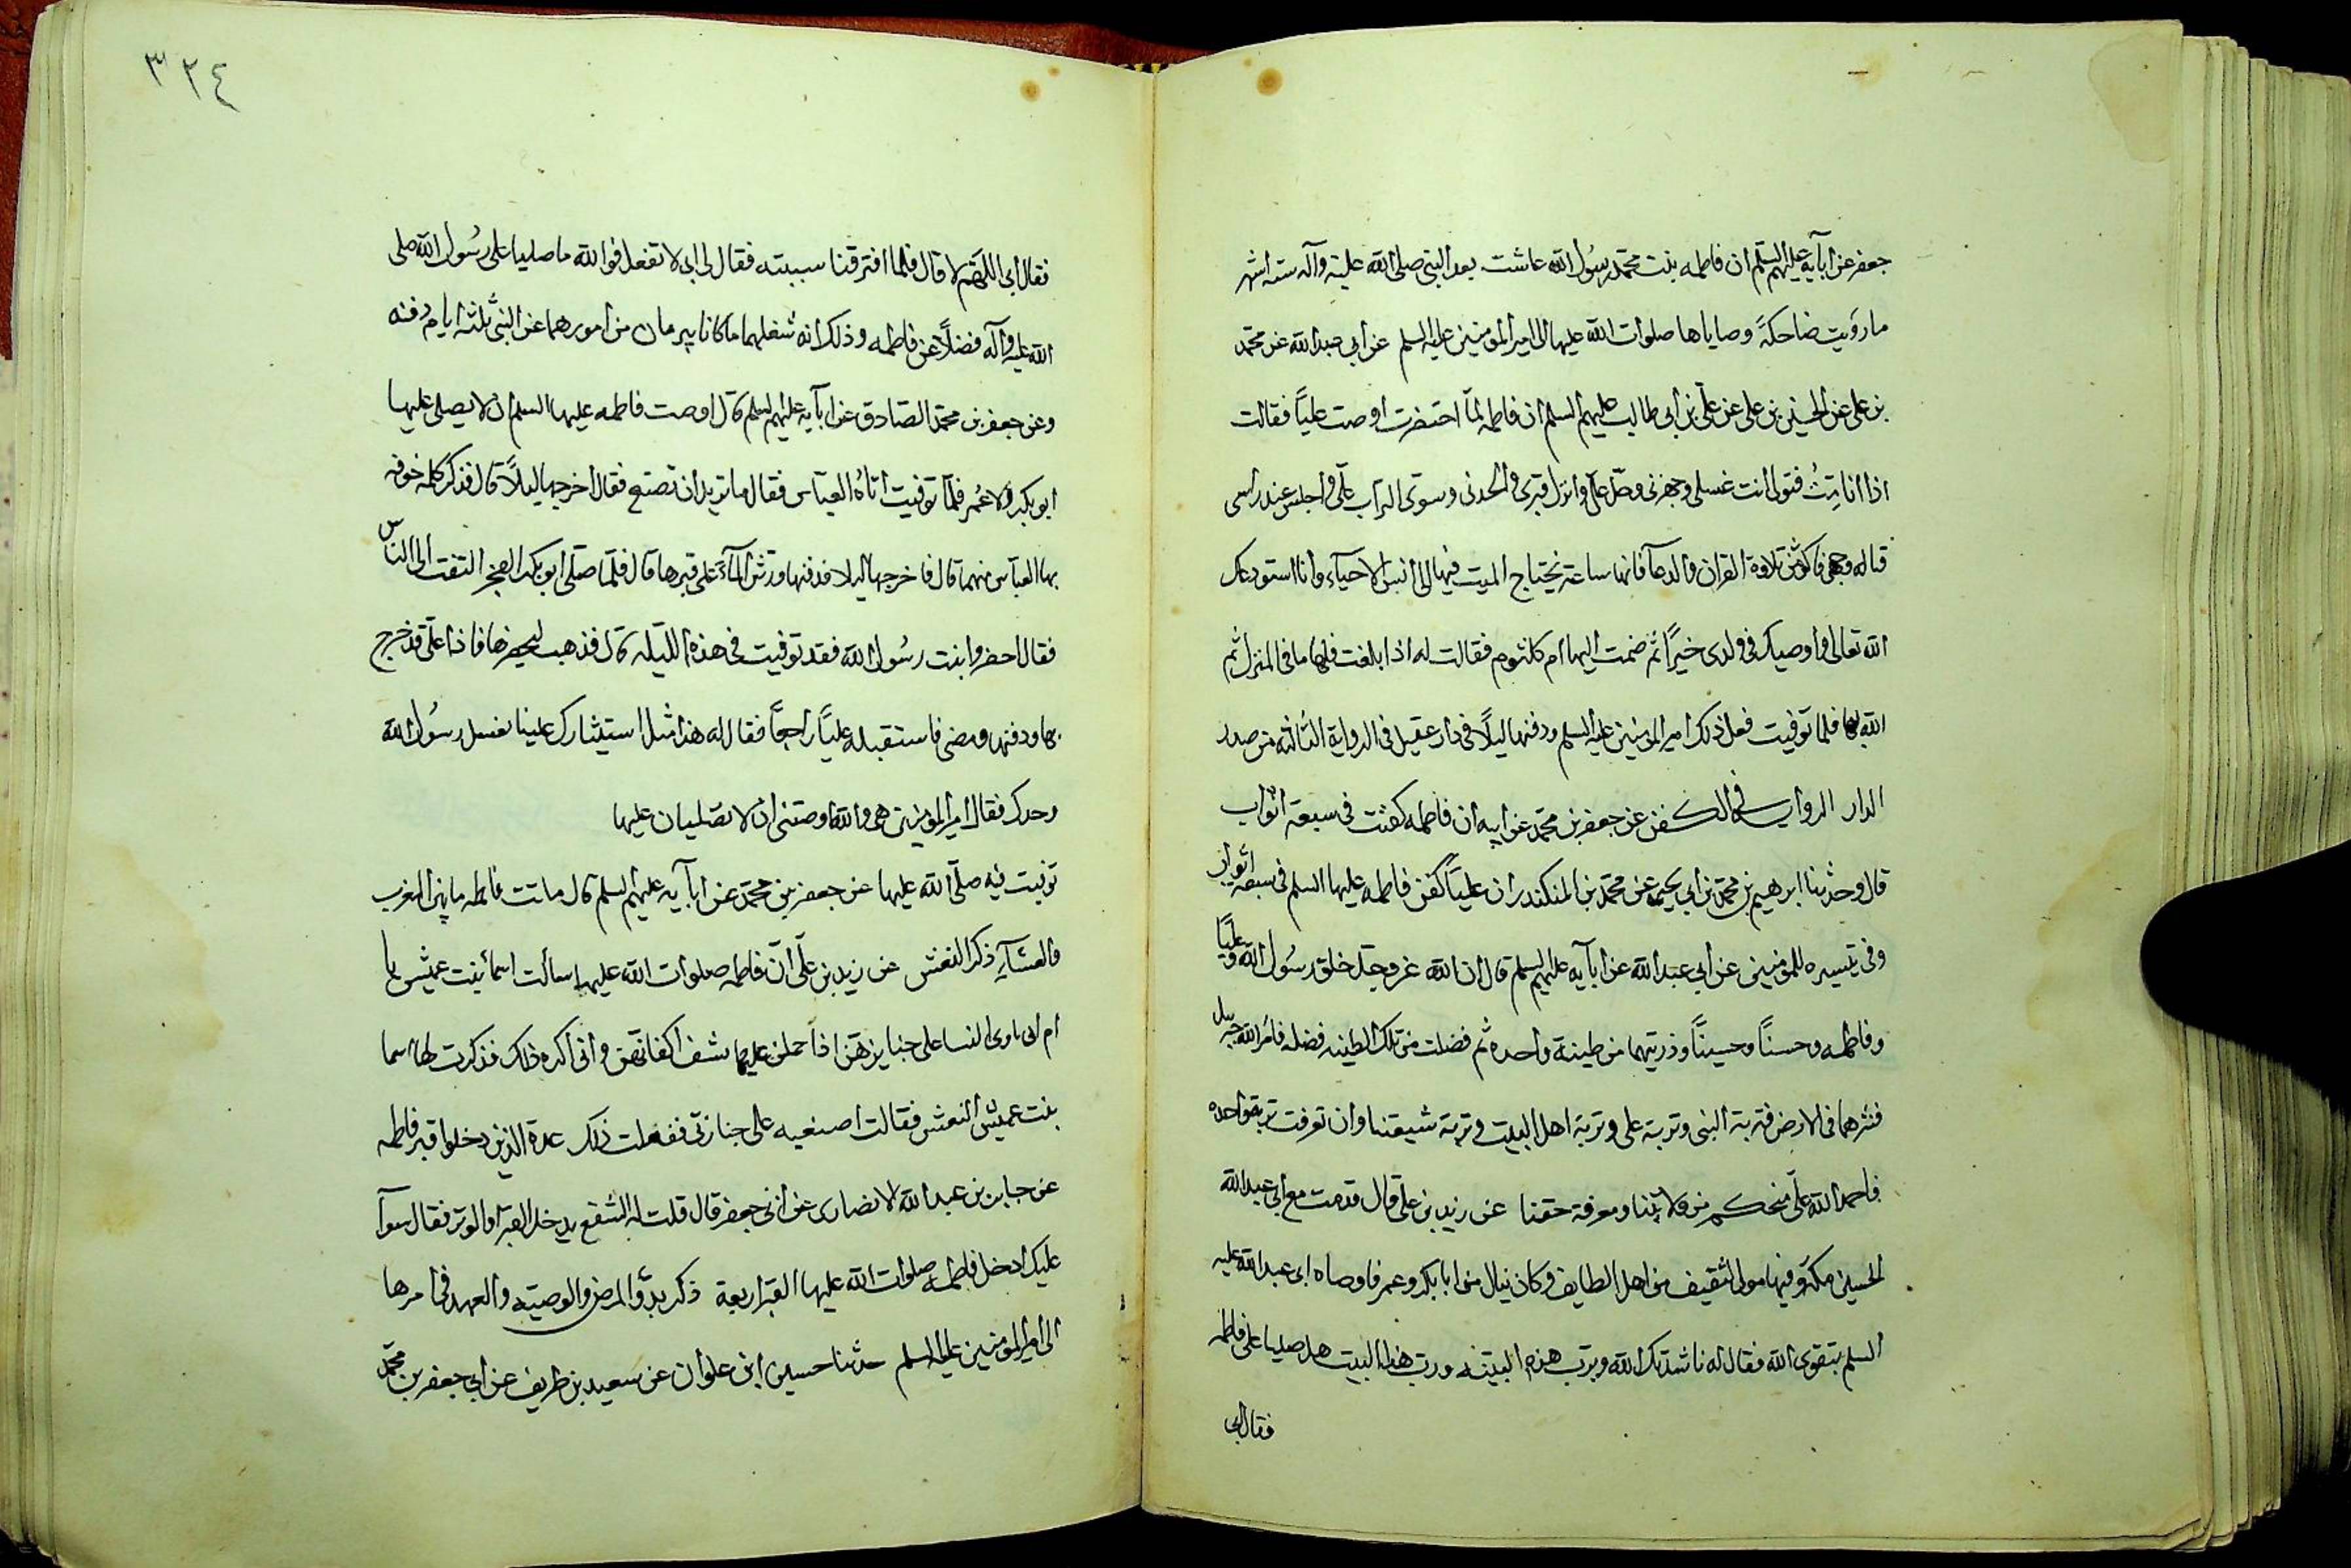 جعفر عن ابآيه عليهم السلم ان فاطمه بنت محمد رسُول الله عاشت بعد النبى صلى الله عليه وآله سته اشهر
ما رؤيت ضاحكةً وصاياها صلوات الله عليها الى امير المومنين عليه السلم عن ابى عبدالله عن محمد
بن على عن الحسين بن على عن على بن ابى طالب عليهم السلم ان فاطمه لمّا احتضرت اوصت عليًا فقالت
اذا انا مِتُّ فتولى انت غسلى وجهزنى وصلّ علىّ وانزل قبرى والحدنى وسوّى التراب علىّ واجلس عند راسى
قباله وجهى فاكثر من تلاوة القران والدعآ فانها ساعة يحتاج الميت فيها الى انس الاحيآء وانا استودعك
الله تعالى واوصيك فى ولدى خيرًا ثم ضمت اليها ام كلثوم فقالت له اذا بلغت فلها ما فى المنزل ثم
الله لها فلما توفيت فعل ذلك امير المومنين عليه السلم ودفنها ليلًا فى دار عقيل فى الرواية الثالثه من صدر
الدار الروايه فى الكفن عن جعفر بن محمد عن ابيه ان فاطمه كفنت فى سبعة اثواب
قال وحدثنا ابرهيم بن محمد بن ابى يحيى عن محمد بن المنكدر ان عليًا كفن فاطمه عليها السلم فى سبعة اثواب
وفى تيسيره للمومنين عن ابى عبدالله عن ابآيه عليهم السلم قال ان الله عز وجل خلق رسُول الله وعليًا
وفاطمه وحسنًا وحسينًا وذريتهما من طينة واحده ثم فضلت من تلك الطينه فضله فامر الله جبريل
فنثرهما فى الارض فتربة النبى وتربة على وتربة اهل البيت وتربة شيعتنا وان تعرفت تربة واحده
فاحمد الله على منحكم من ولايتنا ومعرفة حقنا عن زيد بن على قال قدمت مع ابى عبدالله
الحسين مكه وفيها مولى لثقيف من اهل الطايف وكان ينال من ابا بكر وعمر فاوصاه ابى عبدالله عليه
السلم بتقوى الله فقال له ناشدتك الله وبرب هذه البينه ورب هذا البيت هل صليا على فاطمه
فقال ابى
٣٢٤
فقال ابى اللهم لا قال فلما افترقنا سببته فقال لى ابى لا تفعل فوالله ما صليا على رسُول الله صلى
الله عليه وآله فضلًا عن فاطمه وذلك انه شغلهما ما كانا يبرمان من امورهما عن النبى ثلثة ايام دفنه
وعن جعفر بن محمد الصادق عن ابآيه عليهم السلم قال اوصت فاطمه عليها السلم ان لا يصلى عليها
ابو بكر ولا عُمر فلمّا توفيت اتاهُ العباس فقال ما تريد ان تصنع فقال اخرجها ليلًا قال فذكر كلمة خوفه
بها العباس منهما قال فاخرجها ليلا فدفنها ورش المآء على قبرها قال فلمّا صلى ابو بكر الفجر التفت الى الناس
فقال احضروا بنت رسُول الله فقد توفيت فى هذه الليله قال فذهب ليحضرها فاذا على قد خرج
بها ودفنها ومضى فاستقبله عليًا راجعًا فقال له هذا مثل استيثارك علينا بغسل رسُول الله
وحدك فقال امير المومنين هى والله اوصتنى ان لا تصليان عليها
توفيت فيه صلى الله عليها عن جعفر بن محمد عن ابآيه عليهم السلم قال ماتت فاطمه ما بين المغرب
والعشآءِ ذكر النعش عن زيد بن على ان فاطمه صلوات الله عليها سألت اسمآ بنت عميش يا
ام انى ارى النسا على جنايزهن اذا حملن عليها تشف اكفانهن وانى اكره ذلك فذكرت لها اسما
بنت عميس النعش فقالت اصنعيه على جنازتى ففعلت ذلك عدة الذين دخلوا قبر فاطمه
عن جابر بن عبدالله الانصارى عن ابى جعفر قال قلت له الشفع يدخل القبر او الوتر فقال سوآ
عليك ادخل فاطمه صلوات الله عليها القبر اربعة ذكر بدوّ المرض والوصيّه والعهد فى امرها
الى امير المومنين عليه السلم حدثنا حسين ابن علوان عن سعيد بن طريف عن ابى جعفر بن محمد